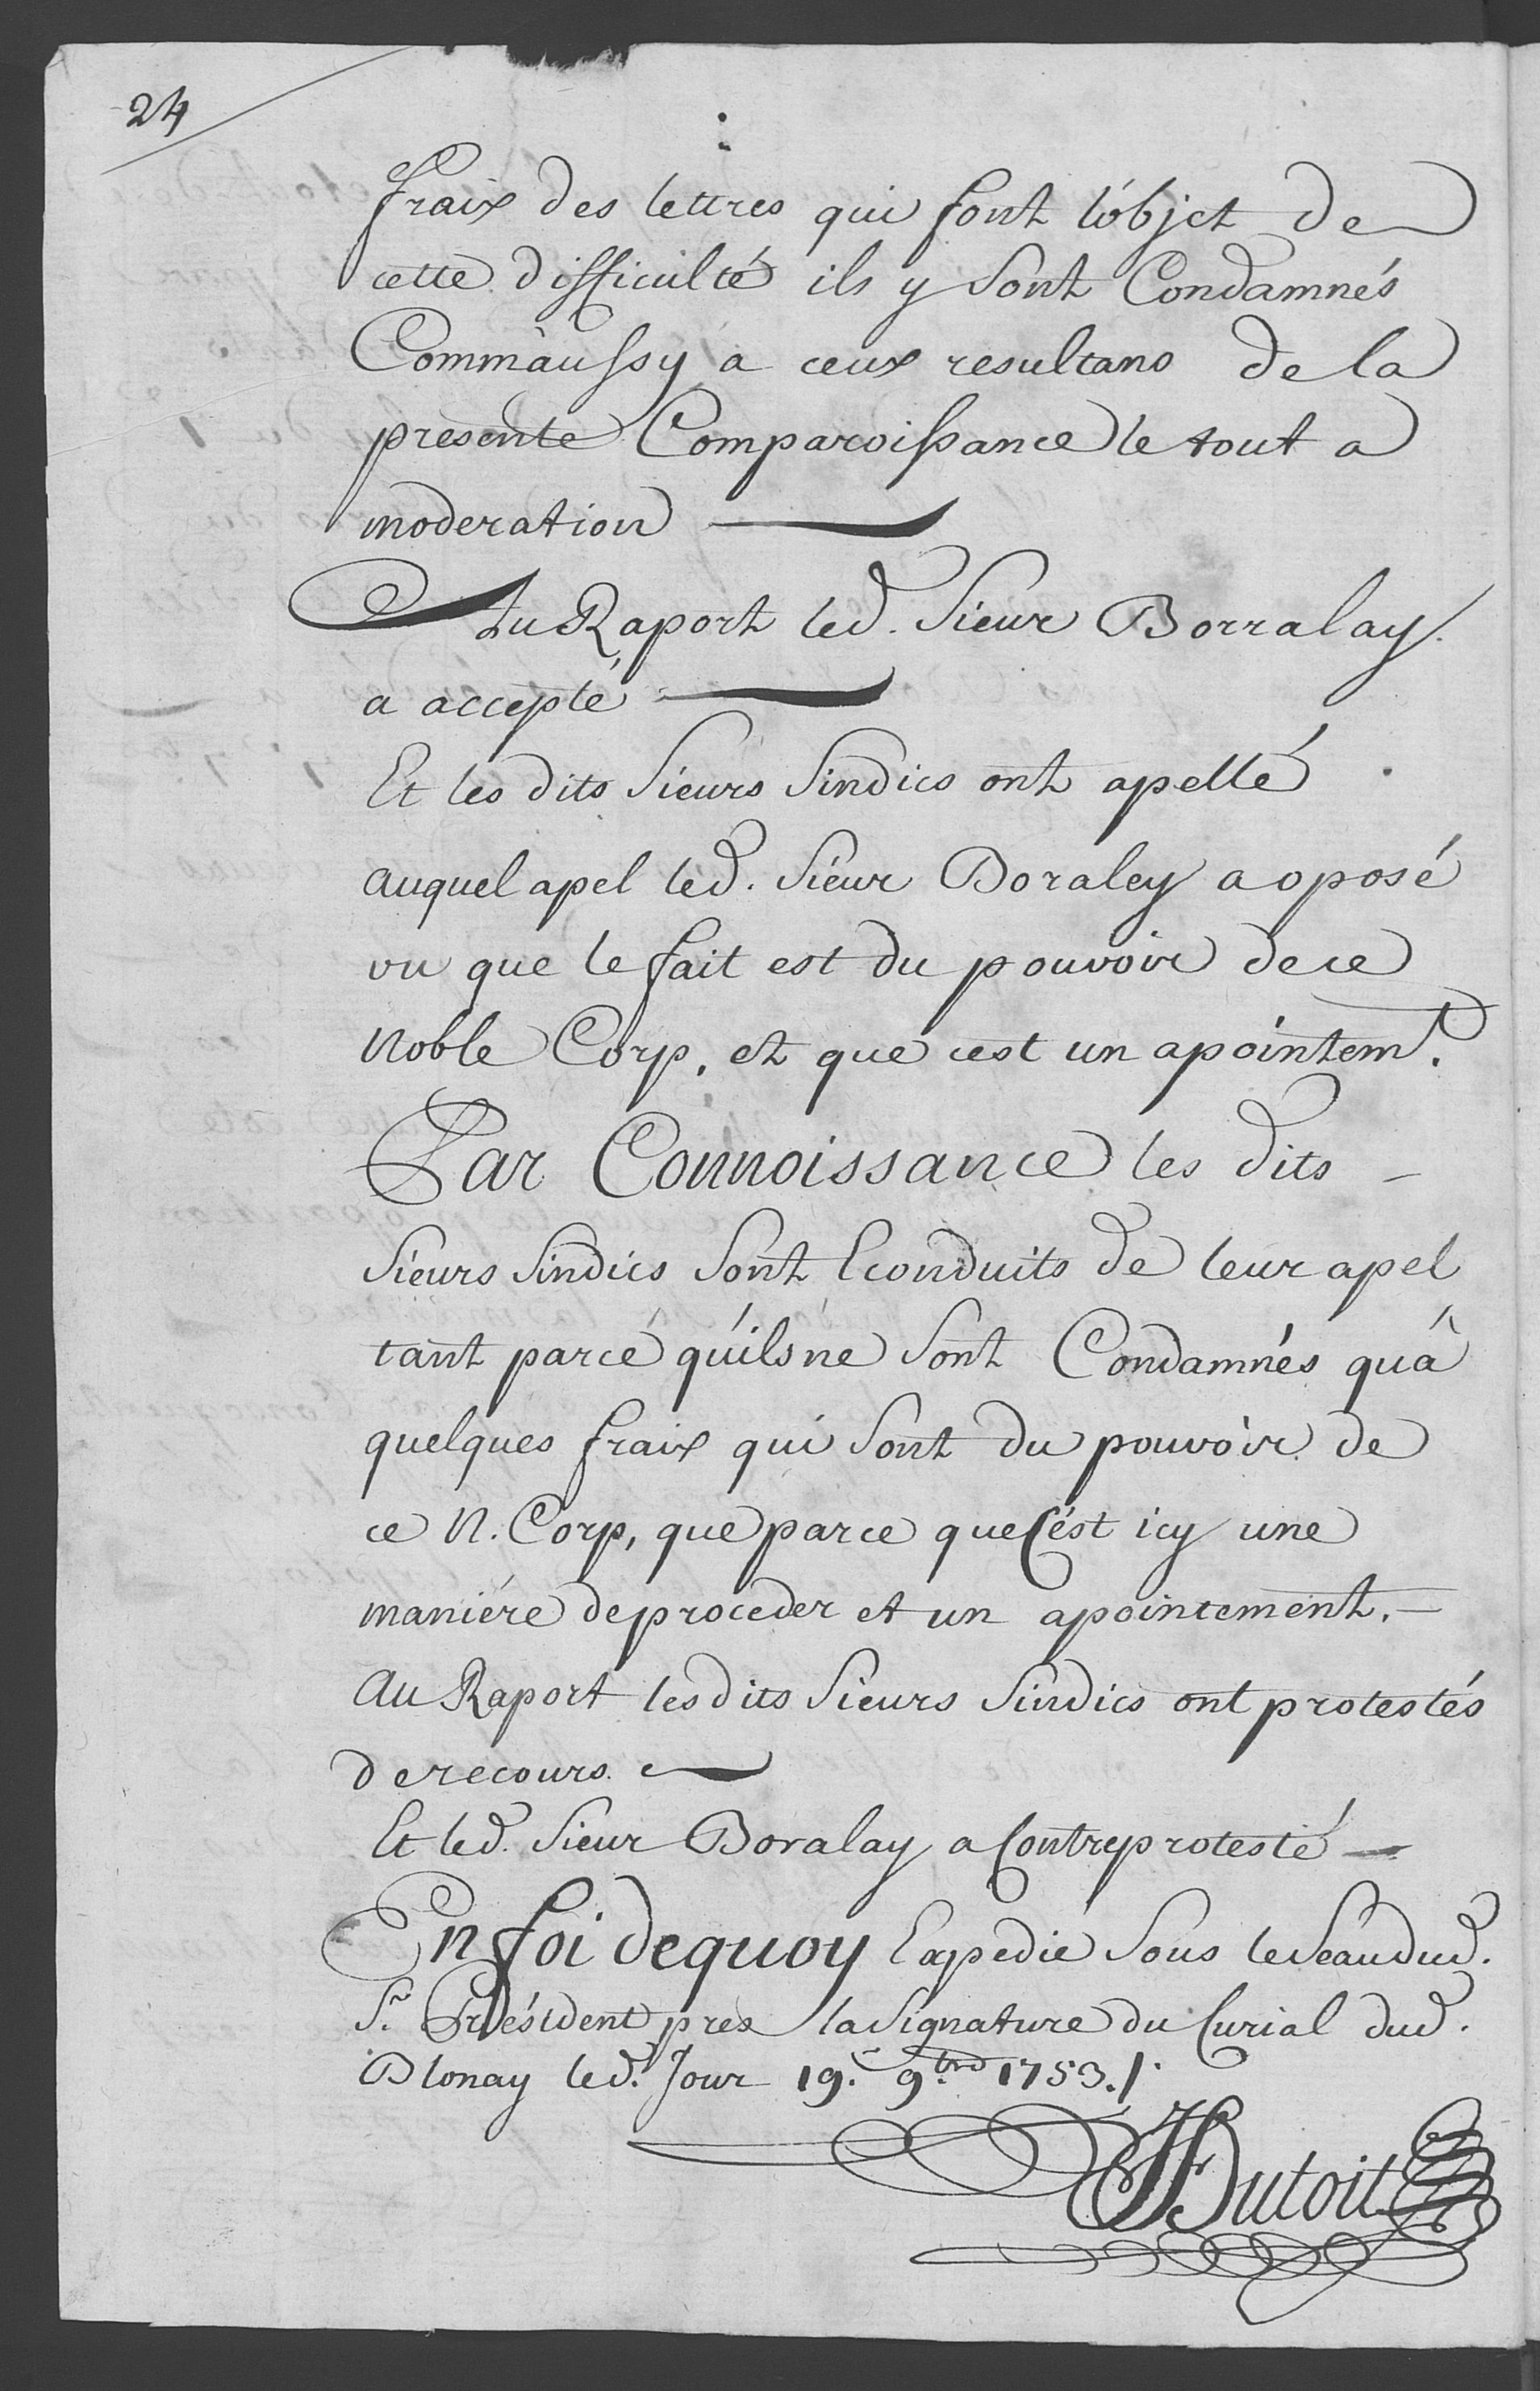 24
fraix des lettres qui font l'óbjet de
cette difficulté ils y sont Condamnés
Comm'aussy a ceux resultans de la
presente Comparoissance le tout a
moderation
Au Raport led. Sieur Borralay
a accepté
Et les dits Sieurs Sindics ont apellé
auquel apel led. Sieur Boraley a oposé
vu que le fait est du pouvoir de ce
Noble Corp, et que cest un apointemt.
Par Connoissance les dits
Sieurs Sindics sont Econduits de leur apel
tant parce qúils ne sont Condamnés quà
quelques fraix qui sont du pouvoir de
ce N. Corp, que parce que C'ést icy une
maniére de proceder et un apointement.
Au Raport les dits Sieurs Sindics ont protestés
de recours.
Et led. Sieur Boralay a Contreprotesté
En foi dequoy Expedié sous le Seau dud.
Sr. Président pres la signature du Curial dud.
Blonay led. Jour 19.e 9bre 1753./.
Dutoit